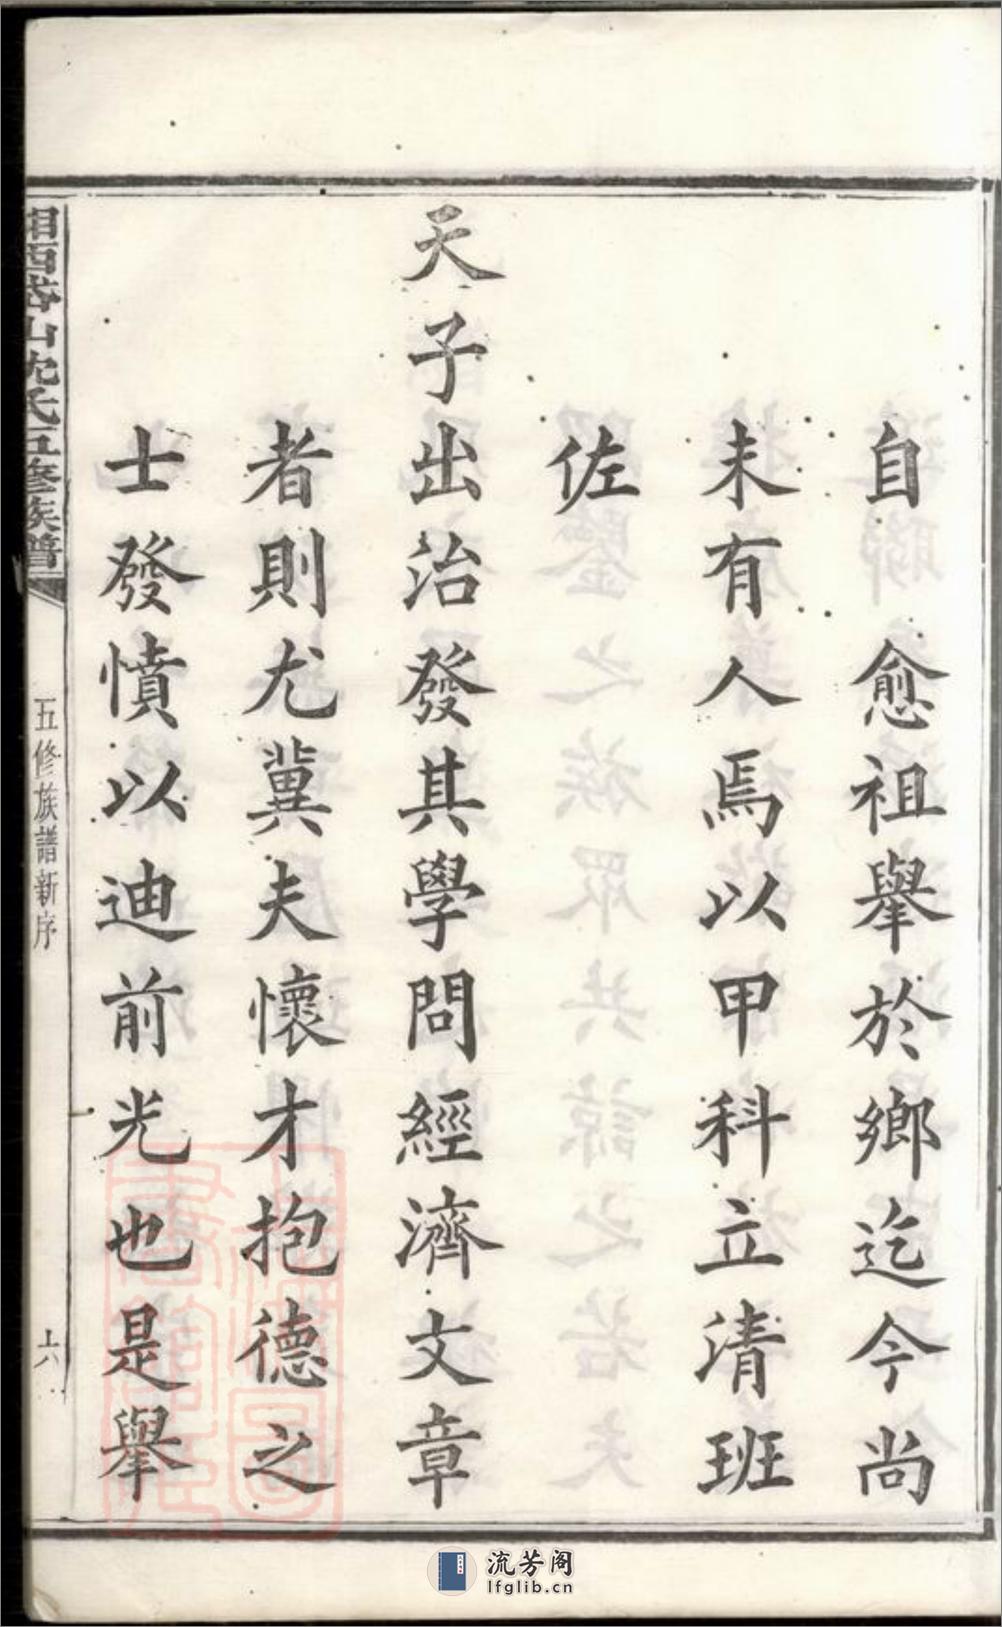 自 愈祖舉於鄉迄今尚
未有人焉以甲科立清班
佐
天子出治發其學問經濟文章
者則尤冀夫懷才抱德之
士發憤以迪前光也是舉
湘西岩山沈氏五修族譜
五修族譜新序
六
流芳阁
lfglib.cn